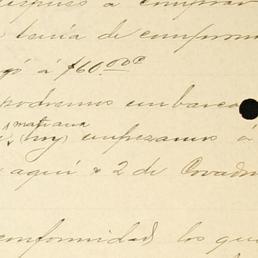 después a comprar
tenía de comprom
á $60.00
podremos embarca
mañana
(hoy) empezamos á
aquí a 2 de Covado
conformidad los que